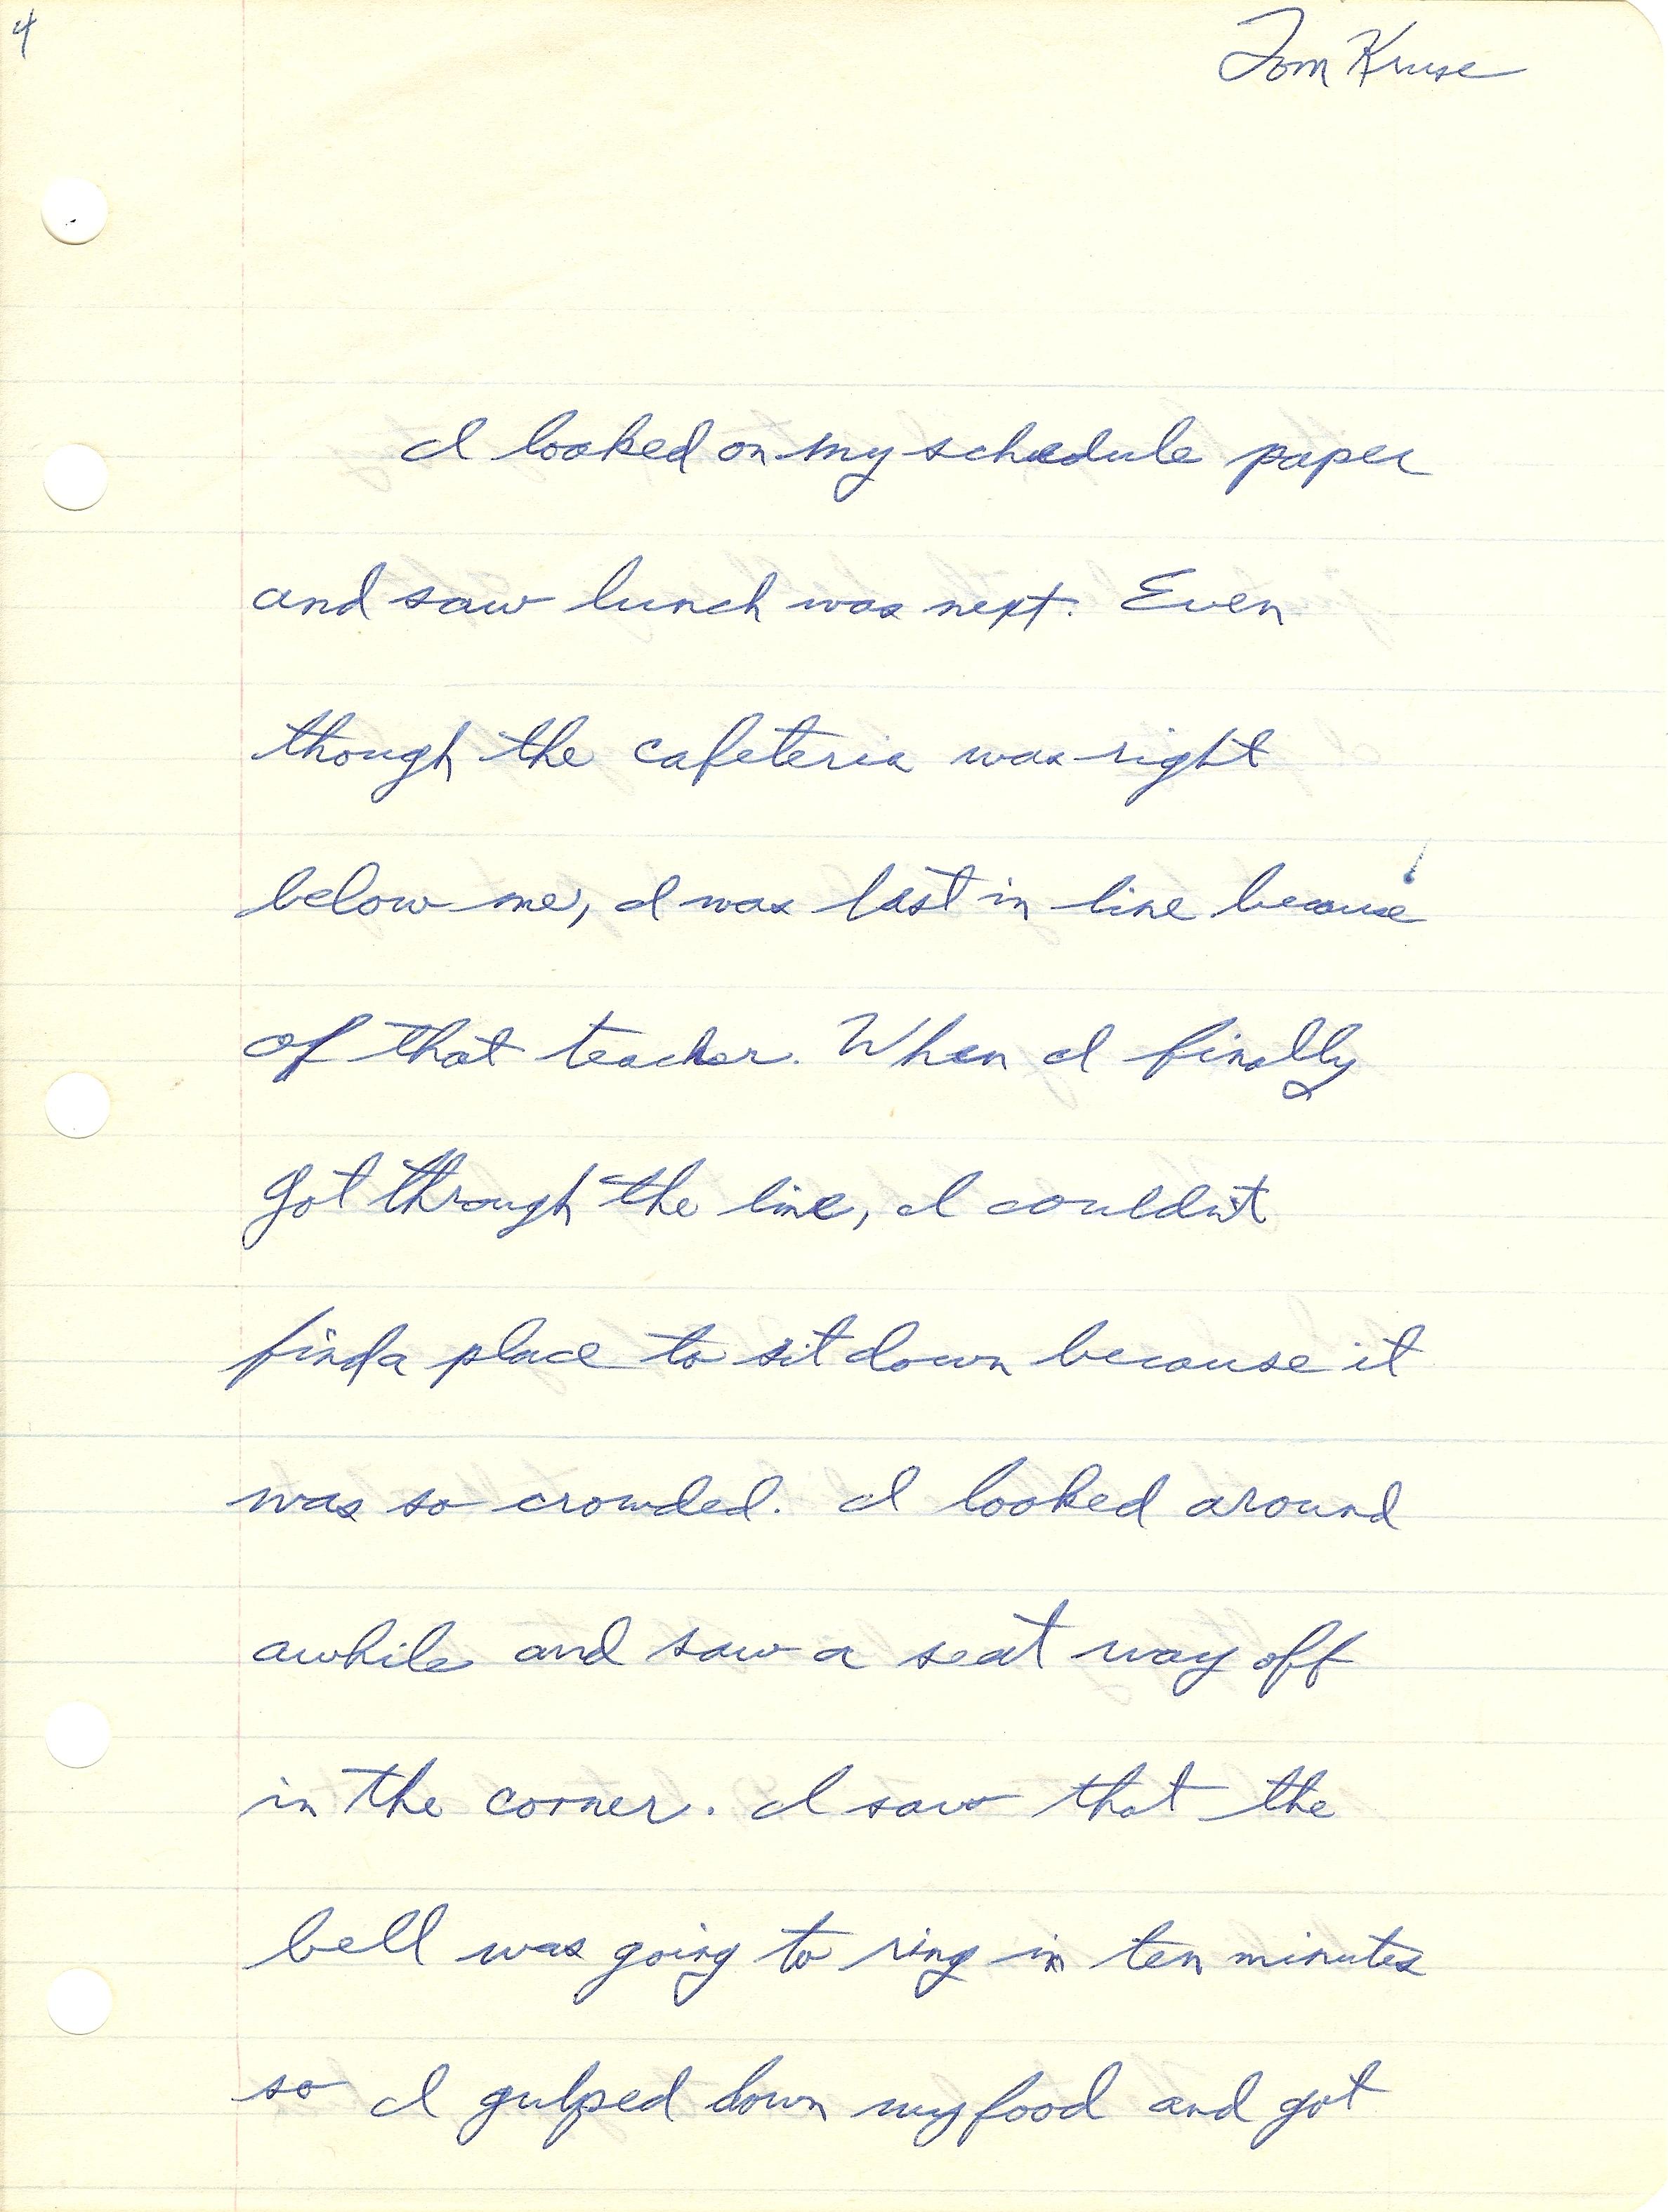 4
Tom Kruse
I looked on my schedule paper
and saw lunch was next. Even
though the cafeteria was right
below me, I was last in line because
of that teacher. When I finally
got through the line, I couldn't
find a place to sit down because it
was so crowded. I looked around
awhile and saw a seat way off
in the corner. I saw that the
bell was going to ring in ten minutes
so I gulped down my food and got